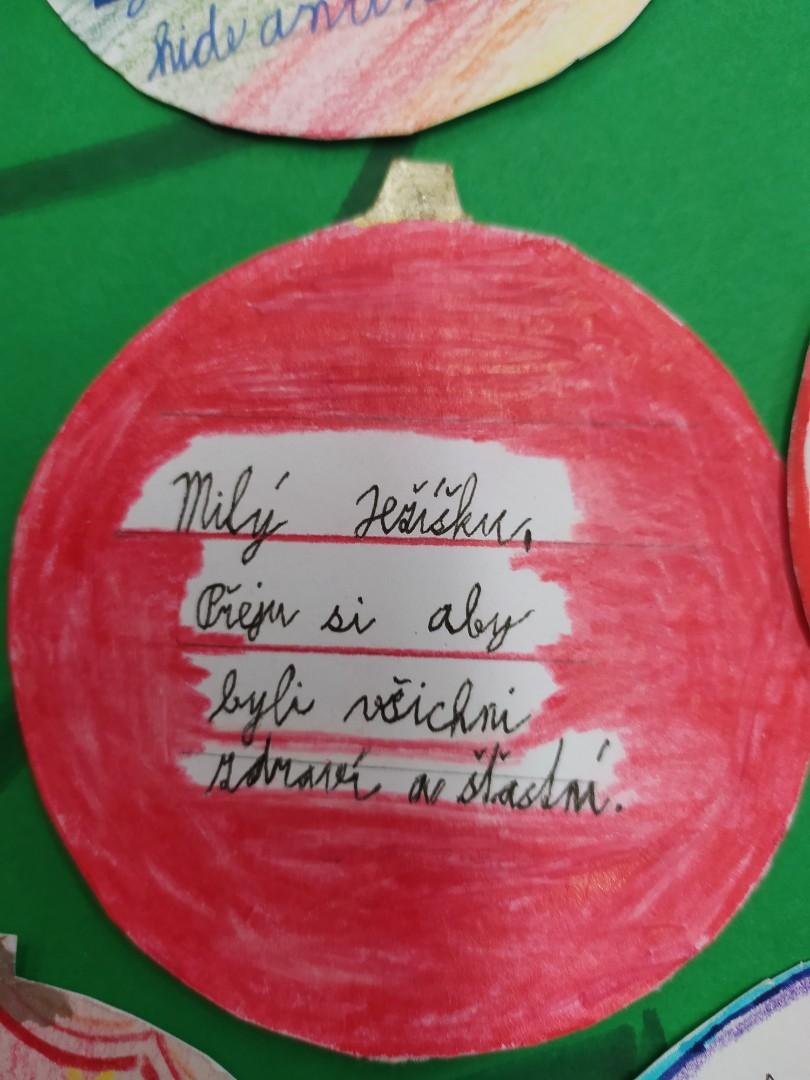 hide and
Milý Ježíšku,
Přeju si aby
byli všichni
zdraví a šťastní.